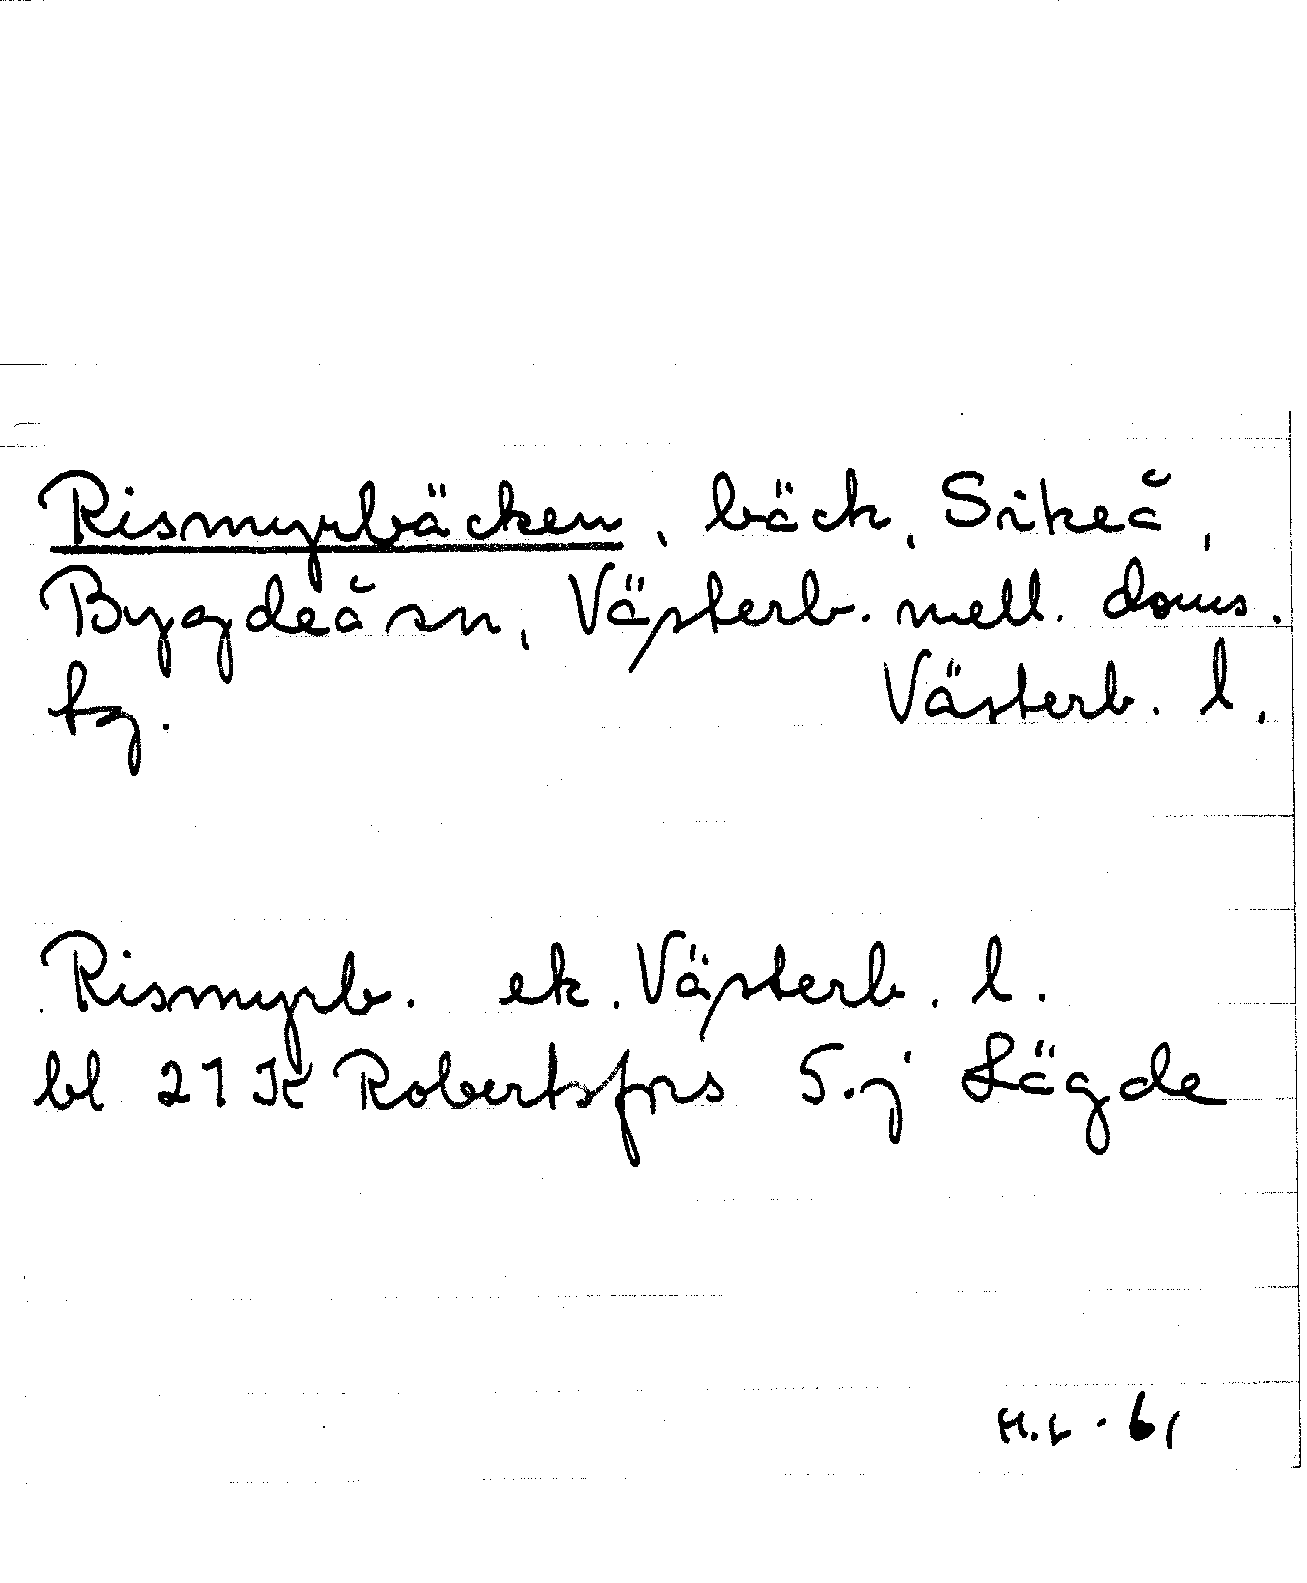 Rismyrbäcken, bäck, Sikeå,
Bygdeå sn, Västerb. mell. doms.
tg. Västerb. l.
Rismyrb. ek. Västerb. l.
bl 21 K Robertsfors 5.j Lägde
H.L. 61